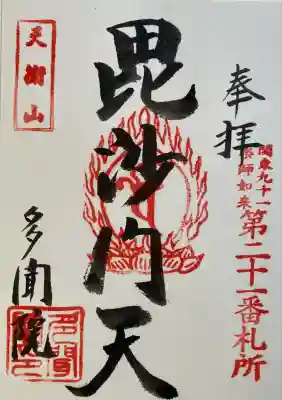 奉拝
関東九十一
薬師如来
第二十一番札所
毘沙門天
天樹山
多聞院